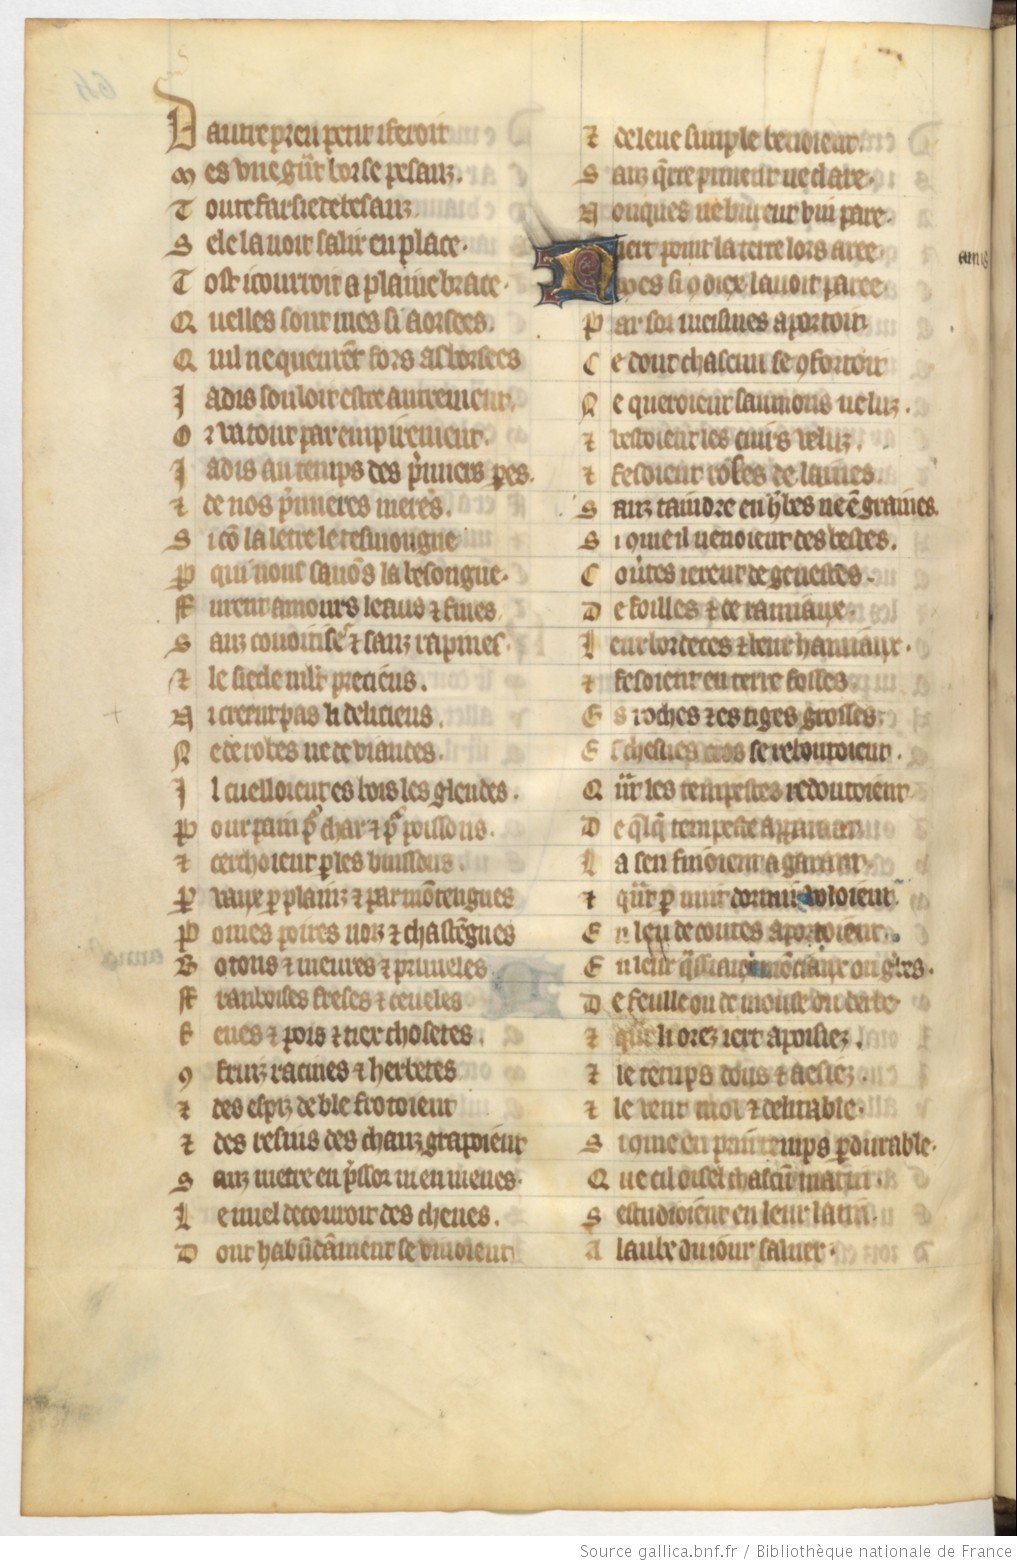 D autre preu petit i feroit
M es vne gñt borse pesanz.
T oute farsie de besanz
S ele la uoit salir en place.
T ost i courroit a plaine brace.
Q uelles sont mes si aorsees.
Q uil ne queurēt fors as borsees
J adis souloit estre autrement.
O r va tout par empirement.
J adis au temps des p̃miers p̱es.
⁊ de nos p̃mieres meres.
S i cō la letre le tesmongne
P qui nous sauōs la besongne.
ff urent amours leaus ⁊ fines
S anz couoitise ⁊ sanz rapines.
⁊ le siecle mlt precieus.
N i estoit pas li delicieus.
N e de robes ne de viandes.
J l cuelloient es bois les glendes.
P our pain pͬ char ⁊ pͬ poissons.
⁊ cerchoient p̱ les buissons.
P vaux p̱ plainz ⁊ par mōtengnes
P omes poires noiz ⁊ chastēgnes
B otons ⁊ meures ⁊ pruneles
ff ranboises freses ⁊ ceneles
F eues ⁊ pois ⁊ tiex chosetes.
⁊ fruiz racines ⁊ herbetes
⁊ des espiz de ble frotoient
⁊ des resins des chanz grapoient
S anz metre en p̃ssor n en meues.
L e miel decouroit des chenes.
D ont habūdāment se viuoient
⁊ de leue simple beuoient.
S anz q̃rre piment ne clare.
N onques ne burent vin pare.
N iert point la terre lors aree
M es si 9 diex lauoit paree
P ar soi meismes aportoit
C e dont chascun se 9fortoit
N e queroient saumons ne luz.
⁊ vestoient les cuirs veluz.
⁊ fesoient robes de laines.
S anz taindre en h̃bes ne ē graines.
S i 9me il uenoient des bestes.
C ouũtes ierent de genestes.
D e foilles ⁊ de ramiaux.
L eur bordetes ⁊ leur hamiaux.
⁊ fesoient en terre fosses
E s roches ⁊ es tiges grosses
E s chesnes cros se reboutoient.
Q ñt les tempestes redoutoient
D e q̃lq̃ tempeste apparant
L a sen fuioient a garant.
⁊ qñt p̱ nuit dormir voloient
E n leu de coutes aportoient.
E n leur monciaux ou gerbes.
D e feuille ou de mousse ou derbe
⁊ qñt li orez iert apoisiez.
⁊ le temps dous ⁊ aesiez.
⁊ le vent mol ⁊ delitable.
S i 9me en printemps p̱durable.
Q ue cil oisel chascū matin.
S estudioient en leur latin.
A laube du iour saluer.
amis